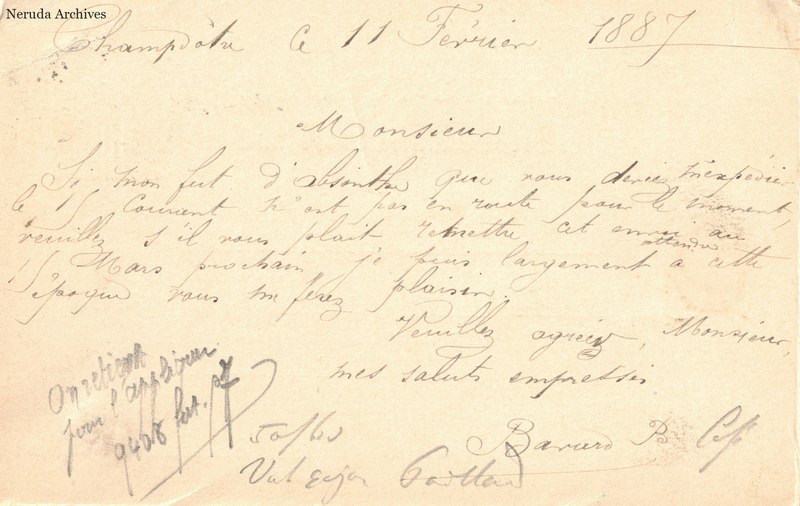 Neruda Archives
Champdôtre le 11 Février 1887
Monsieur
Si mon fut d'absinthe que vous deviez m'expédier
le 15 courant n'est pas en route pour le moment,
veuillez s'il vous plait remettre cet envoi au
15 Mars prochain je puis largement attendre a cette
époque vous me ferez plaisir.
Veuillez agréez, Monsieur,
mes saluts empressés
On retient
pour l'appliquer
9408 fut.
50/60
Bavard P